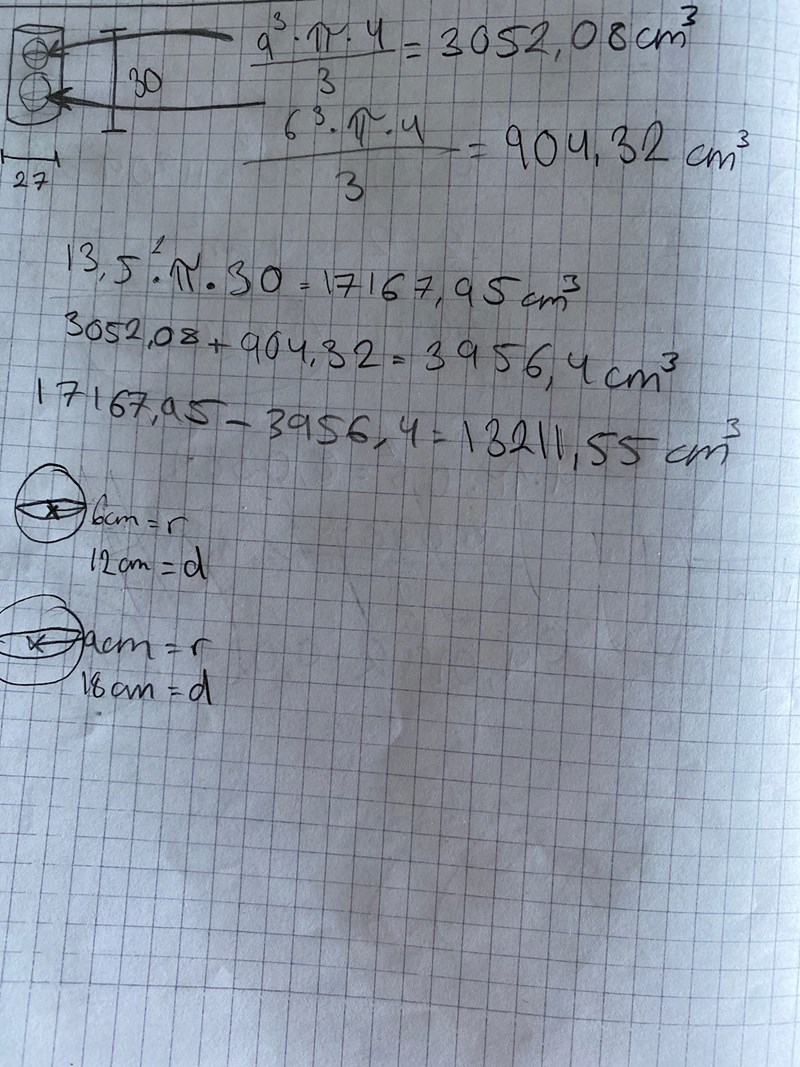 9³·π·4
3
= 3052,08 cm³
30
6³·π·4
3
= 904,32 cm³
27
13,5²·π·30 = 17167,95 cm³
3052,08 + 904,32 = 3956,4 cm³
17167,95 - 3956,4 = 13211,55 cm³
6cm = r
12cm = d
9cm = r
18cm = d